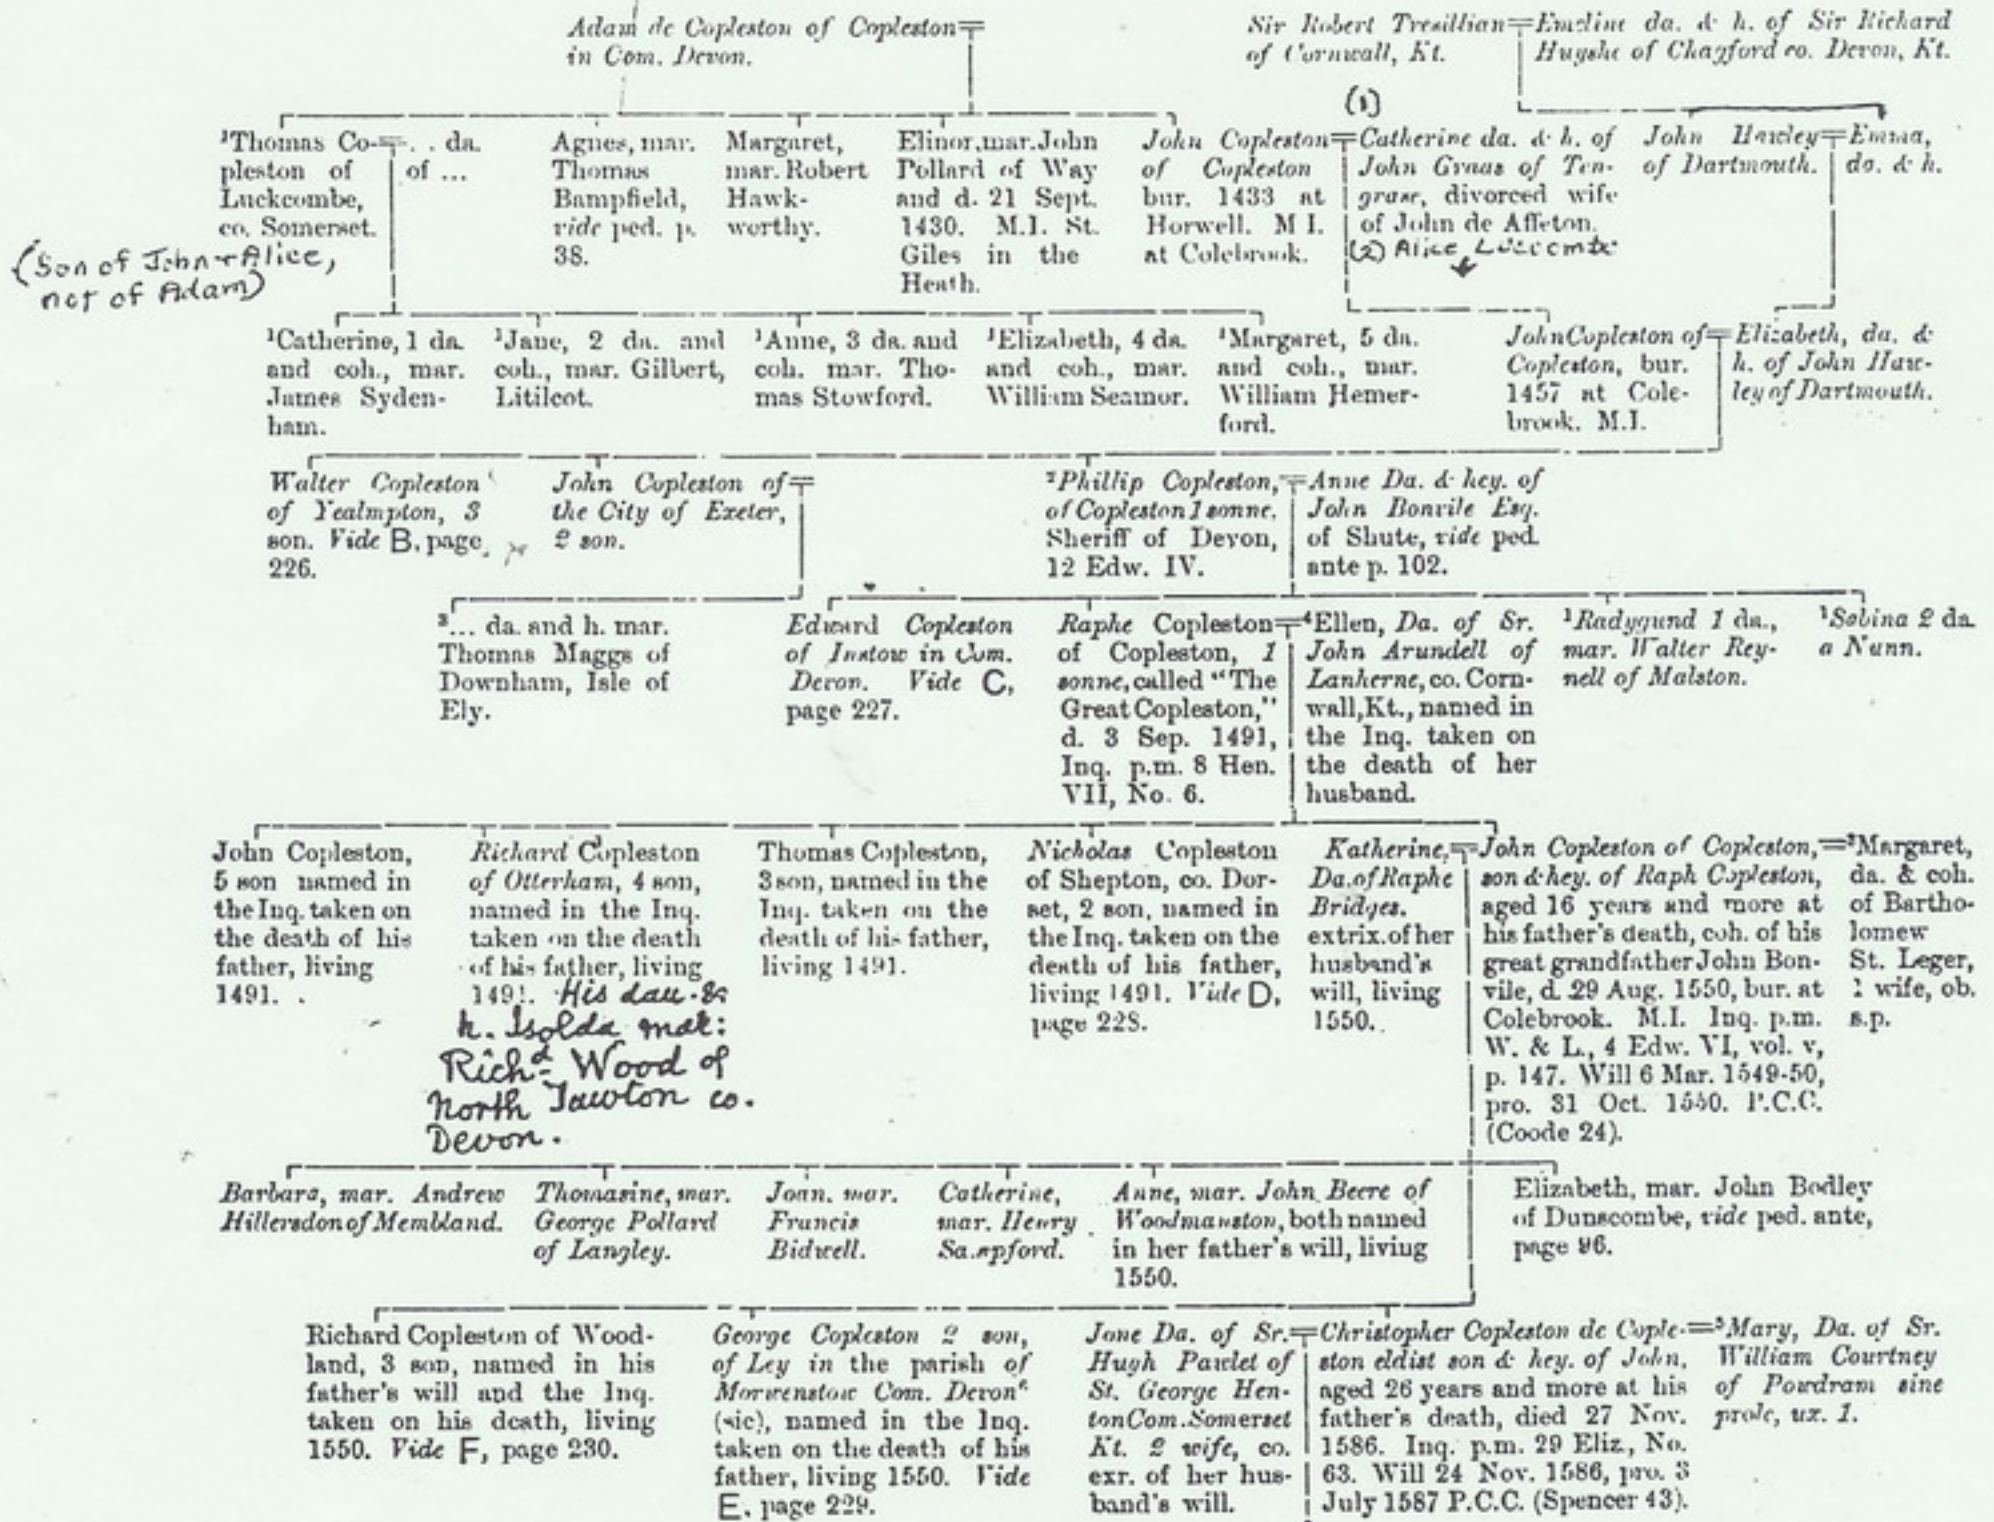 Adam de Copleston of Copleston
in Com. Devon.
Sir Robert Tresillian
of Cornwall, Kt.
Emeline da. & h. of Sir Richard
Huyshe of Chagford co. Devon, Kt.
¹Thomas Co-
pleston of
Luckcombe,
co. Somerset.
(Son of John + Alice,
not of Adam)
. . da.
of ...
Agnes, mar.
Thomas
Bampfield,
vide ped. p.
38.
Margaret,
mar. Robert
Hawk-
worthy.
Elinor, mar. John
Pollard of Way
and d. 21 Sept.
1430. M.I. St.
Giles in the
Heath.
John Copleston
of Copleston
bur. 1433 at
Horwell. M I.
at Colebrook.
(1)
Catherine da. & h. of
John Graas of Ten-
grase, divorced wife
of John de Affeton.
(2) Alice Luccombe
John Hawley
of Dartmouth.
Emma,
da. & h.
¹Catherine, 1 da.
and coh., mar.
James Syden-
ham.
¹Jane, 2 da. and
coh., mar. Gilbert,
Litilcot.
¹Anne, 3 da. and
coh. mar. Tho-
mas Stowford.
¹Elizabeth, 4 da.
and coh., mar.
William Seamor.
¹Margaret, 5 da.
and coh., mar.
William Hemer-
ford.
John Copleston of
Copleston, bur.
1457 at Cole-
brook. M.I.
Elizabeth, da. &
h. of John Haw-
ley of Dartmouth.
Walter Copleston
of Yealmpton, 3
son. Vide B, page
226.
John Copleston of
the City of Exeter,
2 son.
²Phillip Copleston,
of Copleston 1 sonne,
Sheriff of Devon,
12 Edw. IV.
Anne Da. & hey. of
John Bonvile Esq.
of Shute, vide ped.
ante p. 102.
³... da. and h. mar.
Thomas Maggs of
Downham, Isle of
Ely.
Edward Copleston
of Instow in Com.
Devon. Vide C,
page 227.
Raphe Copleston
of Copleston, 1
sonne, called "The
Great Copleston,"
d. 3 Sep. 1491,
Inq. p.m. 8 Hen.
VII, No. 6.
⁴Ellen, Da. of Sr.
John Arundell of
Lanherne, co. Corn-
wall, Kt., named in
the Inq. taken on
the death of her
husband.
¹Radygund 1 da.,
mar. Walter Rey-
nell of Malston.
¹Sobina 2 da.
a Nunn.
John Copleston,
5 son named in
the Inq. taken on
the death of his
father, living
1491.
Richard Copleston
of Otterham, 4 son,
named in the Inq.
taken on the death
of his father, living
1491. His dau. &
h. Isolda mar:
Richd. Wood of
North Tawton co.
Devon.
Thomas Copleston,
3 son, named in the
Inq. taken on the
death of his father,
living 1491.
Nicholas Copleston
of Shepton, co. Dor-
set, 2 son, named in
the Inq. taken on the
death of his father,
living 1491. Vide D,
page 228.
Katherine,
Da. of Raphe
Bridges.
extrix. of her
husband's
will, living
1550.
John Copleston of Copleston,
son & hey. of Raph Copleston,
aged 16 years and more at
his father's death, coh. of his
great grandfather John Bon-
vile, d. 29 Aug. 1550, bur. at
Colebrook. M.I. Inq. p.m.
W. & L., 4 Edw. VI, vol. v,
p. 147. Will 6 Mar. 1549-50,
pro. 31 Oct. 1550. P.C.C.
(Coode 24).
Margaret,
da. & coh.
of Bartho-
lomew
St. Leger,
1 wife, ob.
s.p.
Barbara, mar. Andrew
Hillersdon of Membland.
Thomasine, mar.
George Pollard
of Langley.
Joan. mar.
Francis
Bidwell.
Catherine,
mar. Henry
Sampford.
Anne, mar. John Beere of
Woodmanston, both named
in her father's will, living
1550.
Elizabeth, mar. John Bodley
of Dunscombe, vide ped. ante,
page 96.
Richard Copleston of Wood-
land, 3 son, named in his
father's will and the Inq.
taken on his death, living
1550. Vide F, page 230.
George Copleston 2 son,
of Ley in the parish of
Morwenstow Com. Devon⁶
(sic), named in the Inq.
taken on the death of his
father, living 1550. Vide
E, page 229.
Jone Da. of Sr.
Hugh Pawlet of
St. George Hen-
ton Com. Somerset
Kt. 2 wife, co.
exr. of her hus-
band's will.
Christopher Copleston de Cople-
ston eldist son & hey. of John,
aged 26 years and more at his
father's death, died 27 Nov.
1586. Inq. p.m. 29 Eliz., No.
63. Will 24 Nov. 1586, pro. 3
July 1587 P.C.C. (Spencer 43).
⁵Mary, Da. of Sr.
William Courtney
of Powdram sine
prole, ux. 1.